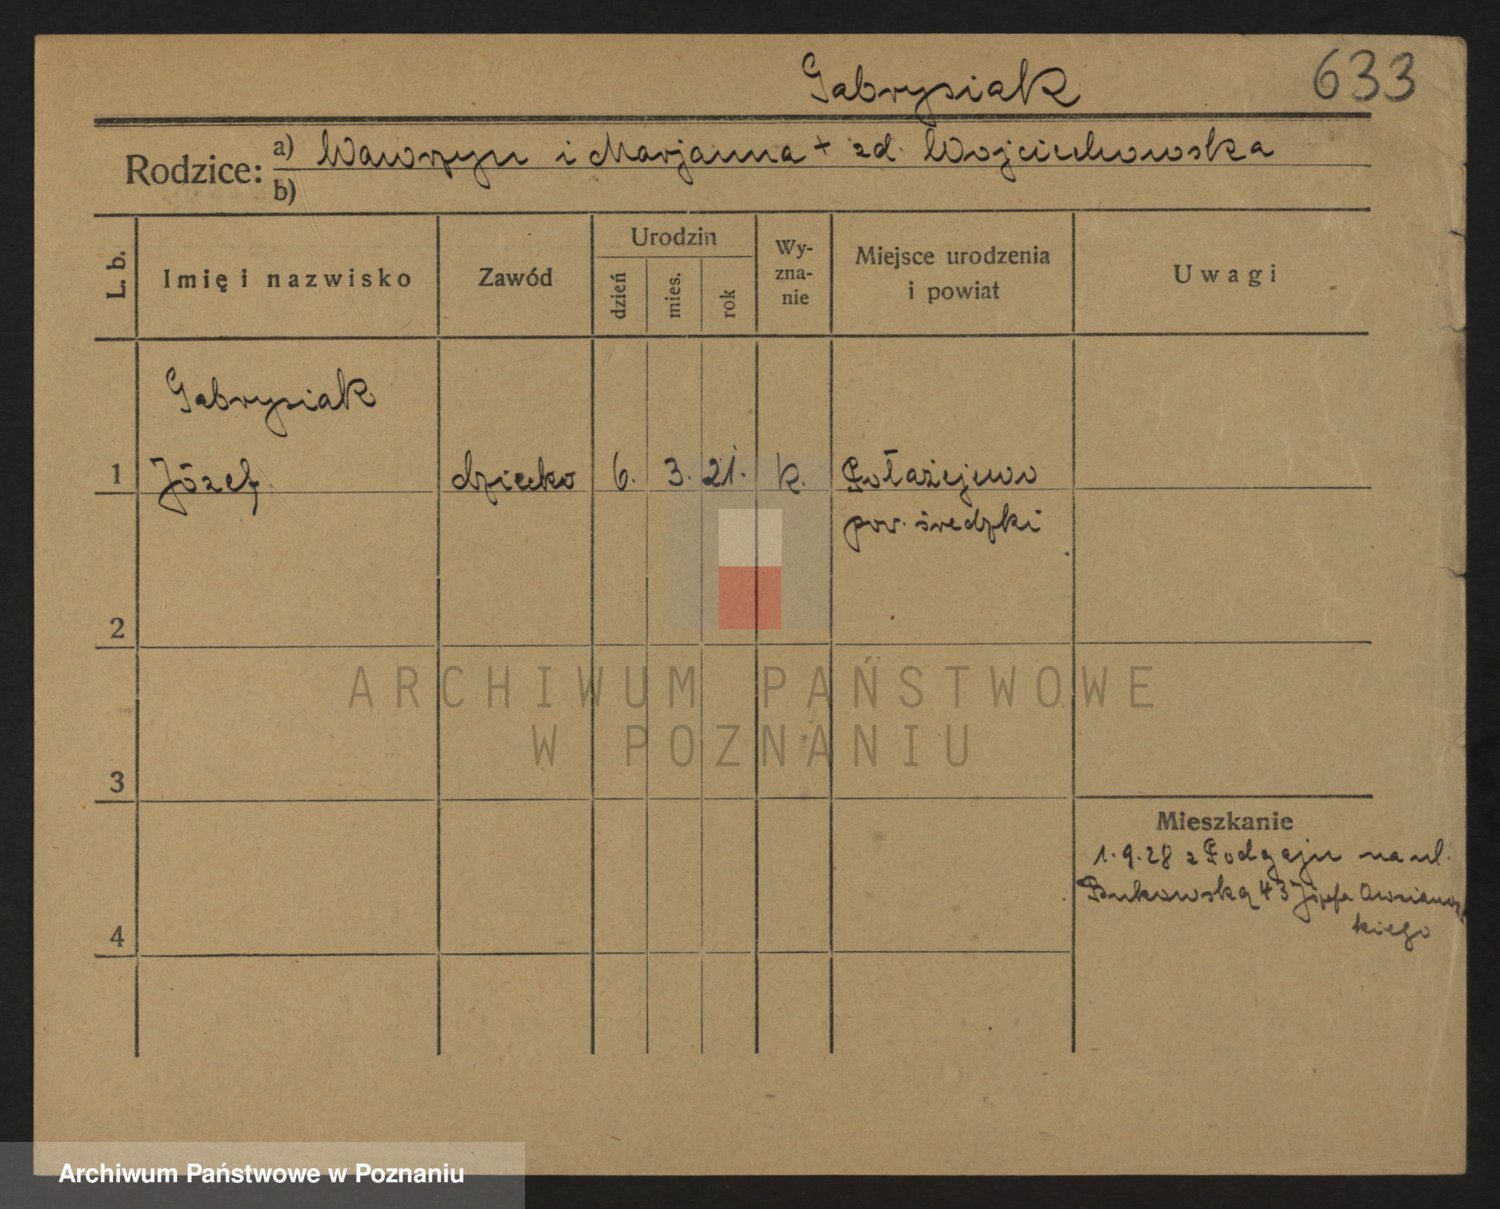 Gabrysiak 633
Rodzice: a) Wawrzyn i Marjanna + zd. Wojciechowska
b)
L. b. Imię i nazwisko Zawód Urodzin dzień mies. rok Wy-zna-nie Miejsce urodzenia i powiat Uwagi
Gabrysiak
1 Józef dziecko 6. 3. 21. k. Połażejewo
pow. średzki
2
ARCHIWUM PAŃSTWOWE
W POZNANIU
3
Mieszkanie
1.9.28 z Podgaju na ul.
Bukowską 43 Józefa
4 kiego
Archiwum Państwowe w Poznaniu